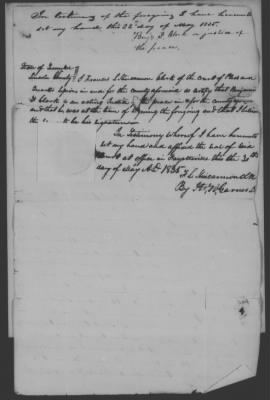 In testimony of the foregoing I have hereunto
set my hand this 22d day of May 1835.
Benj. D. Clark a justice of
the peace
State of Tennessee
Lincoln County I Francis L. Kincannon Clerk of the court of Pleas and
Quarter Sessions in and for the county aforesaid do certify that Benjamin
D. Clark is an acting Justice of the peace in & for the county
and that he was at the time of signing the foregoing and that I believe
the to be his signature
In Testimony whereof I have hereunto
set my hand and affixed the seal of said
court at office in Fayetteville this the 30th
day of May A.D. 1835
F. L. Kincannon Clk
By